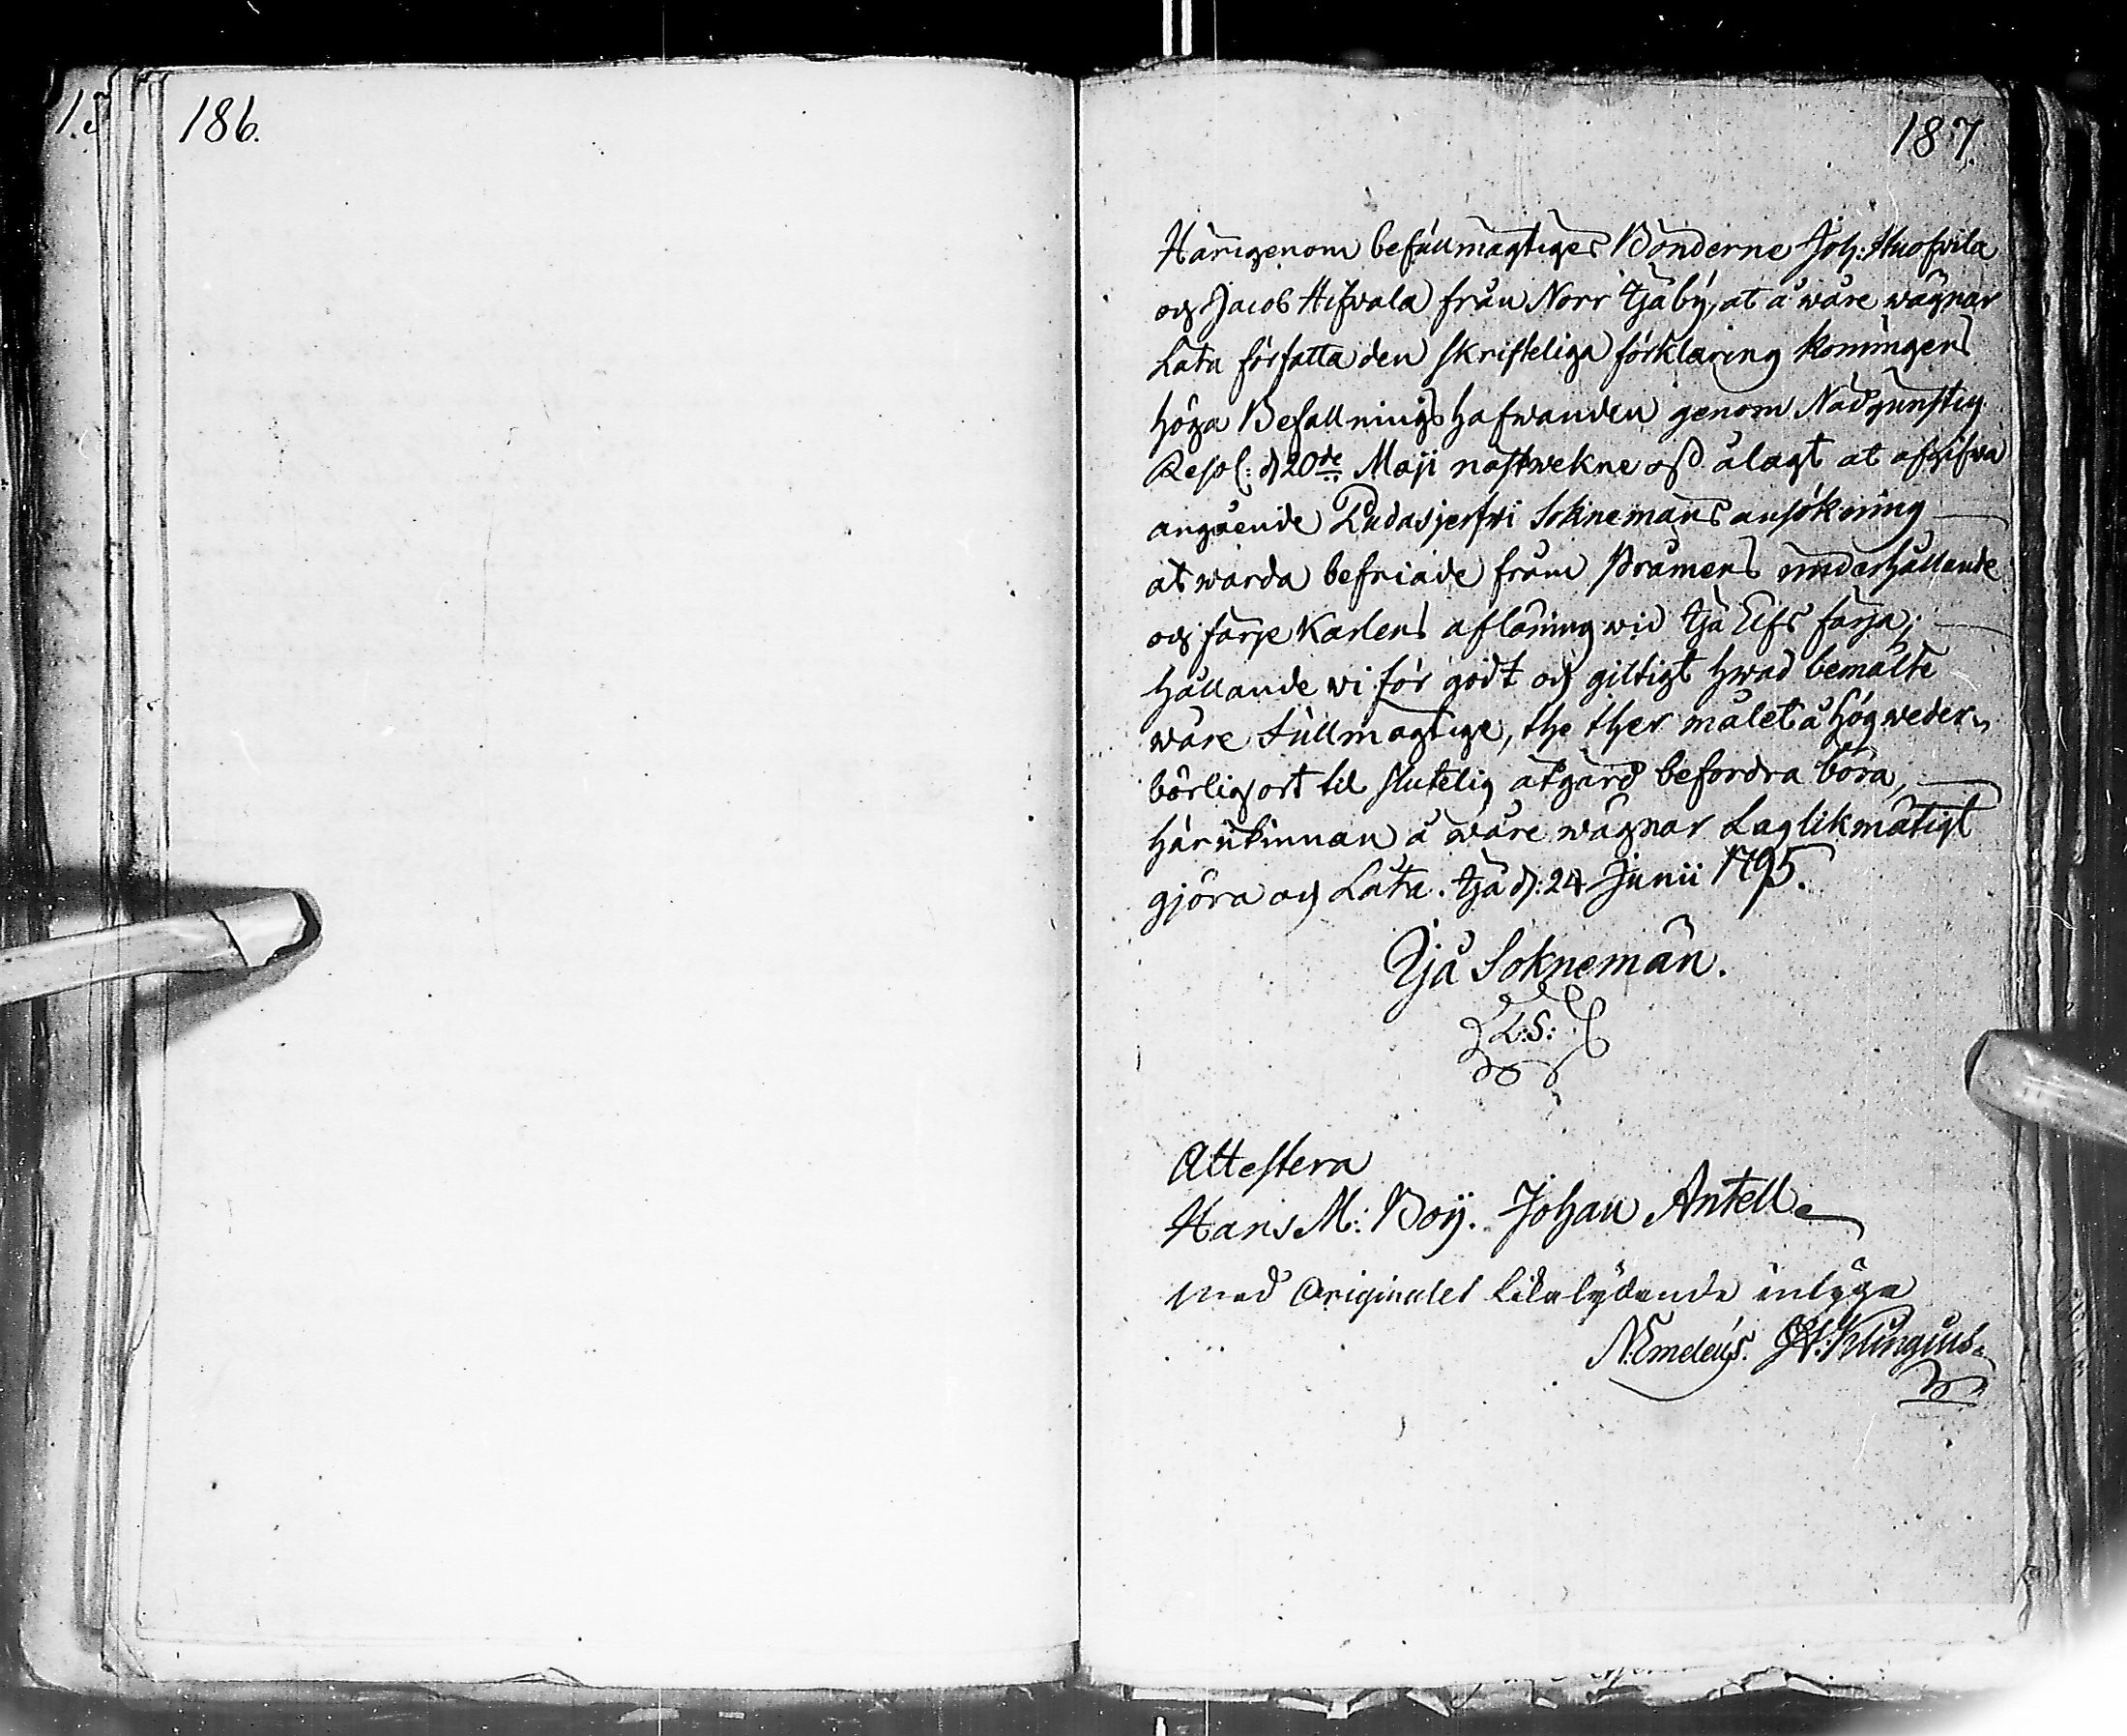 186.
187.
Härigenom befullmagtiges Bönderne Joh: Huofvila
och Jacob Hifvala från Norr Ijå by, at å wåre wägnar
Låta författa den skrifteliga förklaring Konungens
höga Befallningshafwanden genom Nådgunstig
Resol: d 20de Maji nästwekne oss ålagt at afgifwa
angående Pudasjerfwi Soknemäns ansökning
at warda befriade från Pråmens underhållande
och färje Karlens aflöning wid Ijå Elfs färja;
hållande wi för godt och giltigt hwad bemälte
wåre Fullmagtige, the ther målet å hög weder-
börlig ort til slutelig åtgärd befordra böra,
härutinnan å wåre wägnar Laglikmätigt
gjöra och Låta. Ijå d: 24 Junii 1795.
Ijå Soknemän.
L:S:
Attestera
Hans M: Boij. Johan Antell
Med Originalet lika lydande intyga
N: Emeleus. Klingius